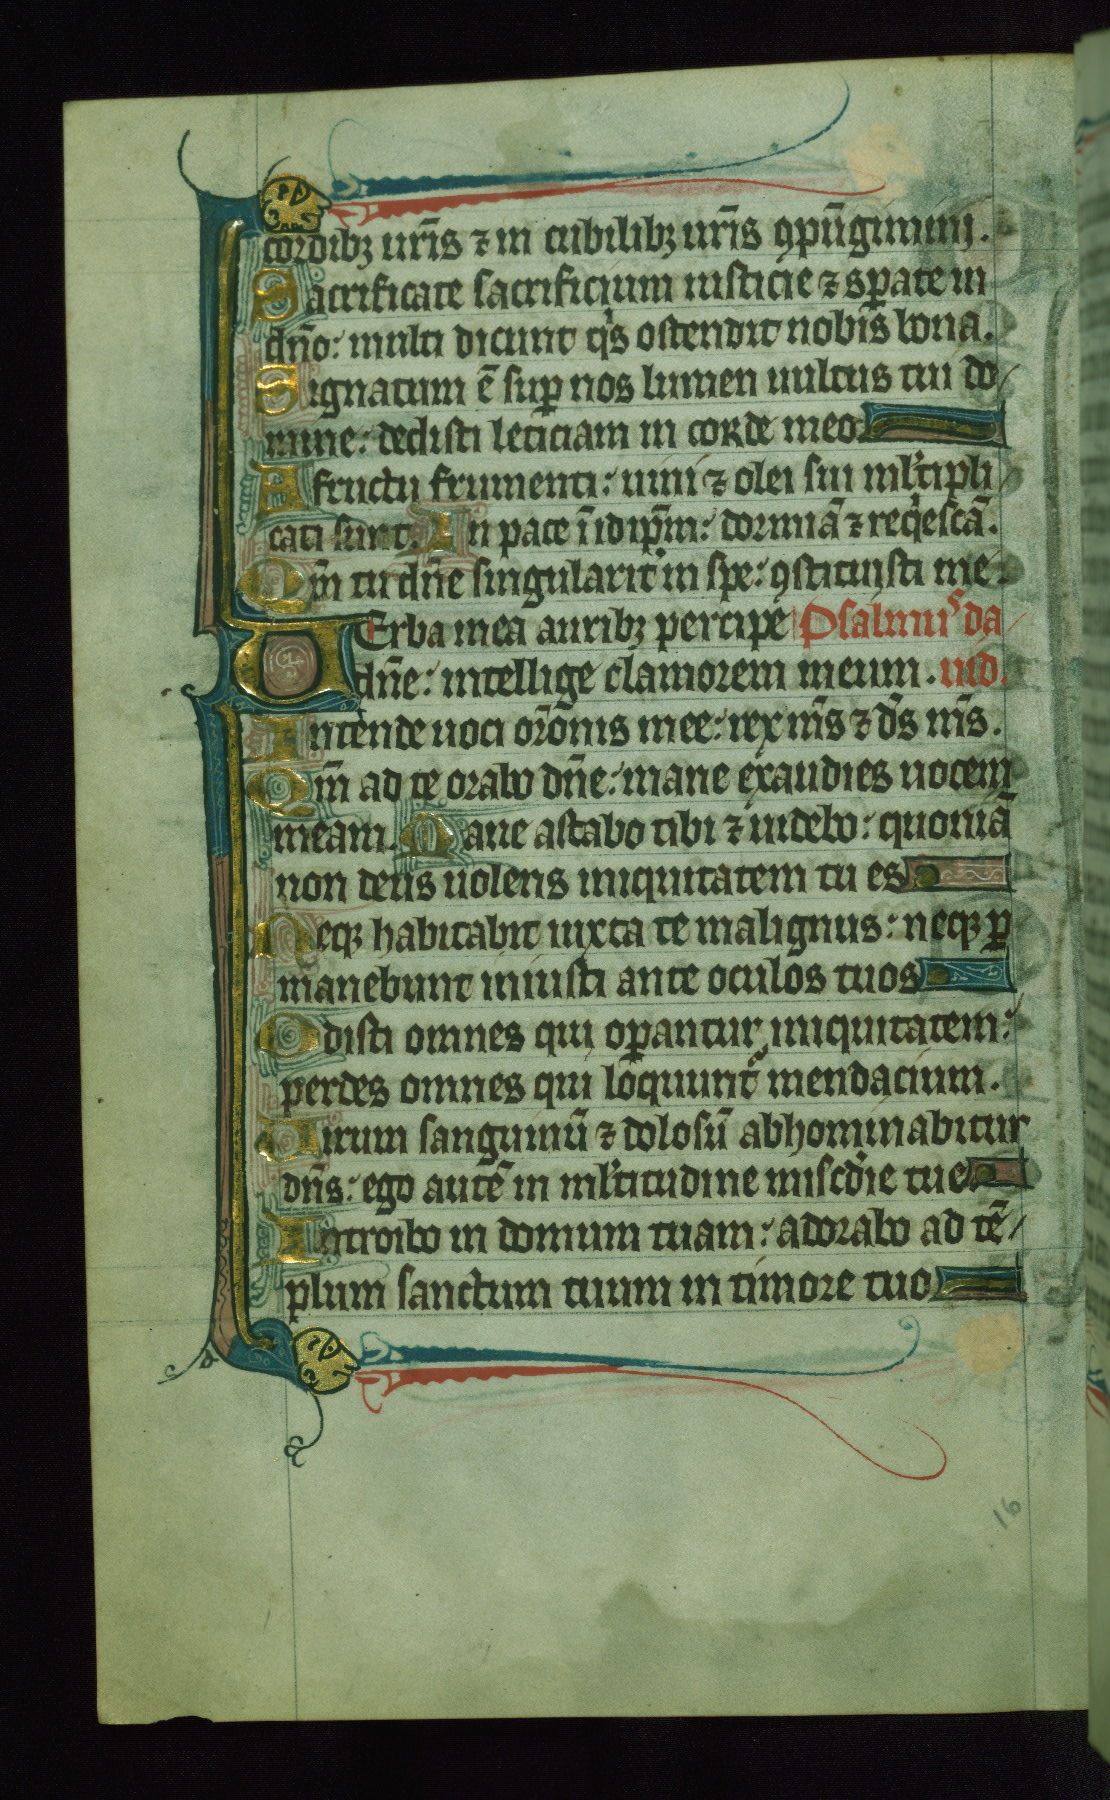 cordibꝫ ur̃is ⁊ in cubilibꝫ ur̃is ꝯpũgimini.
Sacrificate sacrificium iusticie ⁊ sꝑate in
dño: multi dicunt qͥs ostendit nobis bona.
Signatum ẽ suꝑ nos lumen uultus tui do
mine: dedisti leticiam in corde meo.
A fructu frumenti: uini ⁊ olei sui ml̃tipli
cati sunt. In pace ĩ idip̃m: dormiã ⁊ reqͥescã.
Qm̃ tu dñe singulariť in spe: ꝯstituisti me.
Uerba mea auribꝫ percipe Psalmus da
dñe: intellige clamorem meum. uid.
Intende uoci or̃onis mee: rex m̃s ⁊ ds̃ m̃s.
Qm̃ ad te orabo dñe: mane exaudies uocem
meam. Mane astabo tibi ⁊ uidebo: quoniã
non deus uolens iniquitatem tu es
Neqꝫ habitabit iuxta te malignus: neqꝫ ꝑ
manebunt iniusti ante oculos tuos
Odisti omnes qui oꝑantur iniquitatem:
perdes omnes qui loquunt᷑ mendacium.
Uirum sanguinũ ⁊ dolosũ abhominabitur
dñs: ego autẽ in ml̃titudine miscd̃ie tue.
Introibo in domum tuam: adorabo ad tẽ
plum sanctum tuum in timore tuo
16